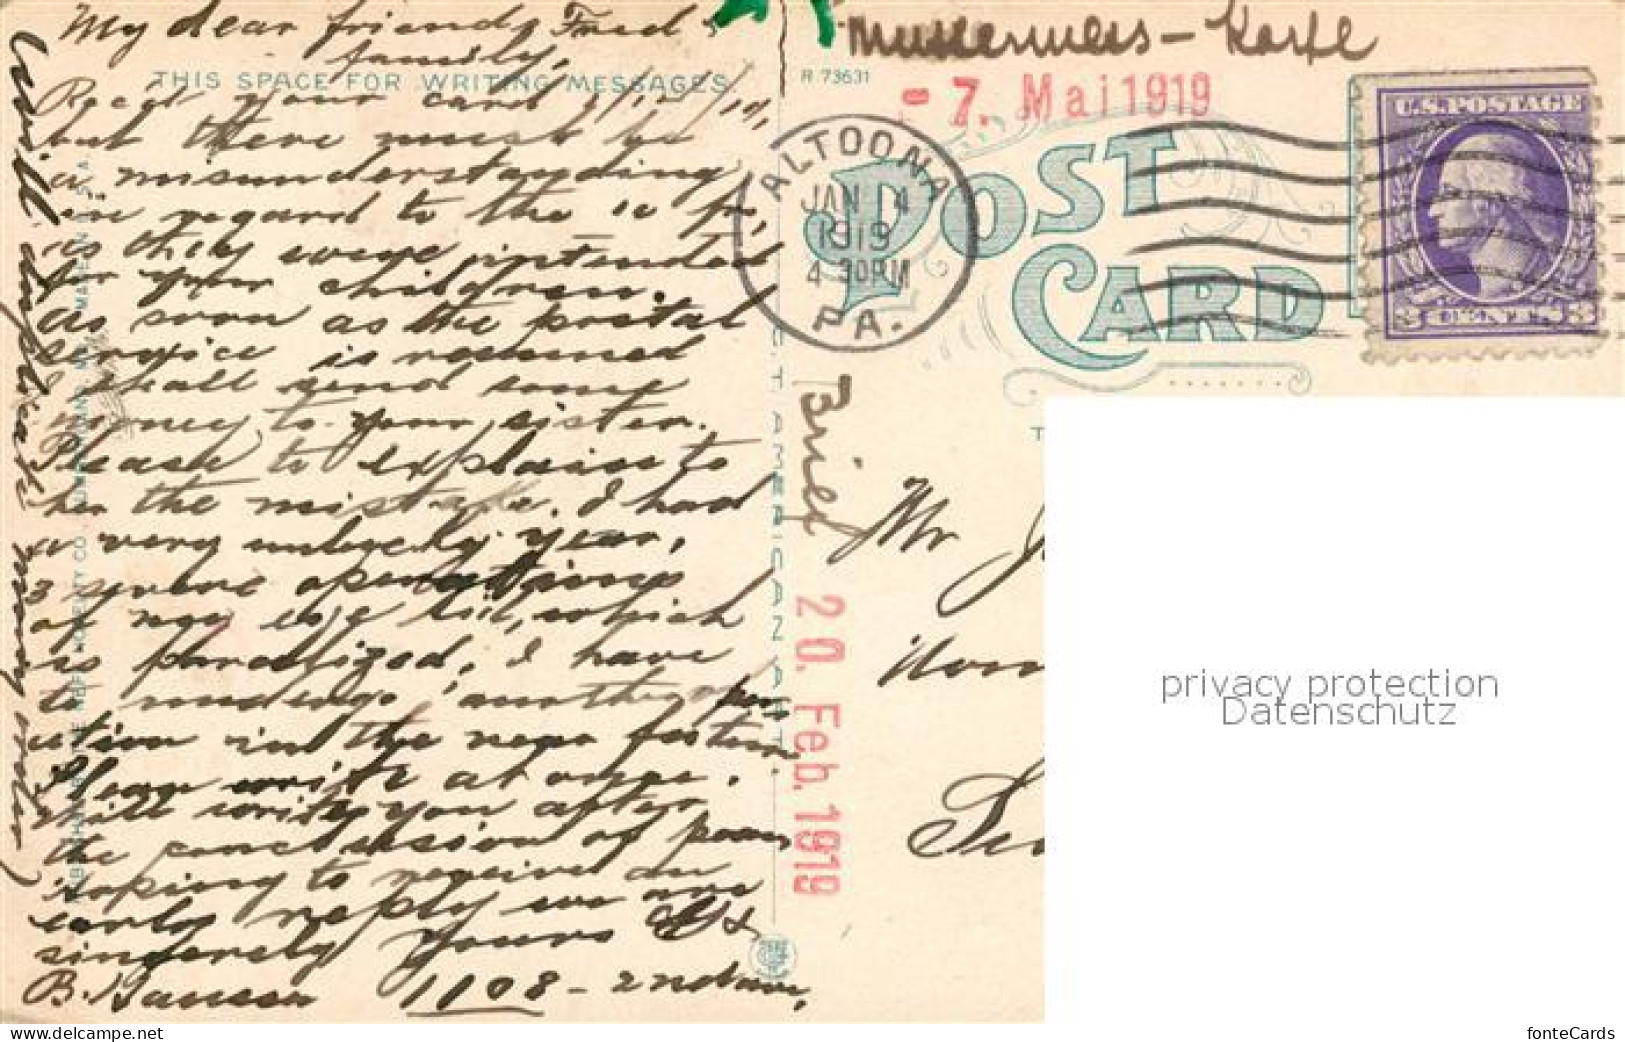 My dear friends Fred &
family,
THIS SPACE FOR WRITING MESSAGES
Rec'd your card
but there must be
a misunderstanding
in regard to the 10 fr,
as they were intended
for your children.
as soon as the postal
service is resumed
I shall send some
money to your sister.
Please to explain to
her the mistake. I had
a very unlucky year,
3 severe operations
of my eye lid, which
is paralized, I have
to undergo another
in the near
Please write at once.
will write you after
the conclusion of
hoping to receive an
early reply we are
sincerely yours
B. 1108 - 2nd ave,
will
many
C.T. AMERICAN ART
R 73631
- 7. Mai 1919
Karte
ALTOONA
JAN 4
1919
4 30 PM
PA.
POST
CARD
U.S. POSTAGE
3 CENTS 3
20. Feb. 1919
Mr
privacy protection
Datenschutz
fonteCards